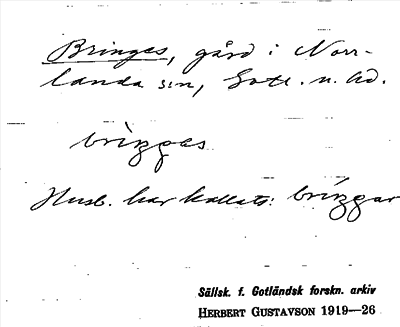 Bringes, gård i Norr-
landa sn, Gotl. n. hd.
brìŋgəs
Husb. har kallats: brìŋgar
Sällsk. f. Gotländsk forskn. arkiv
HERBERT GUSTAVSON 1919—26